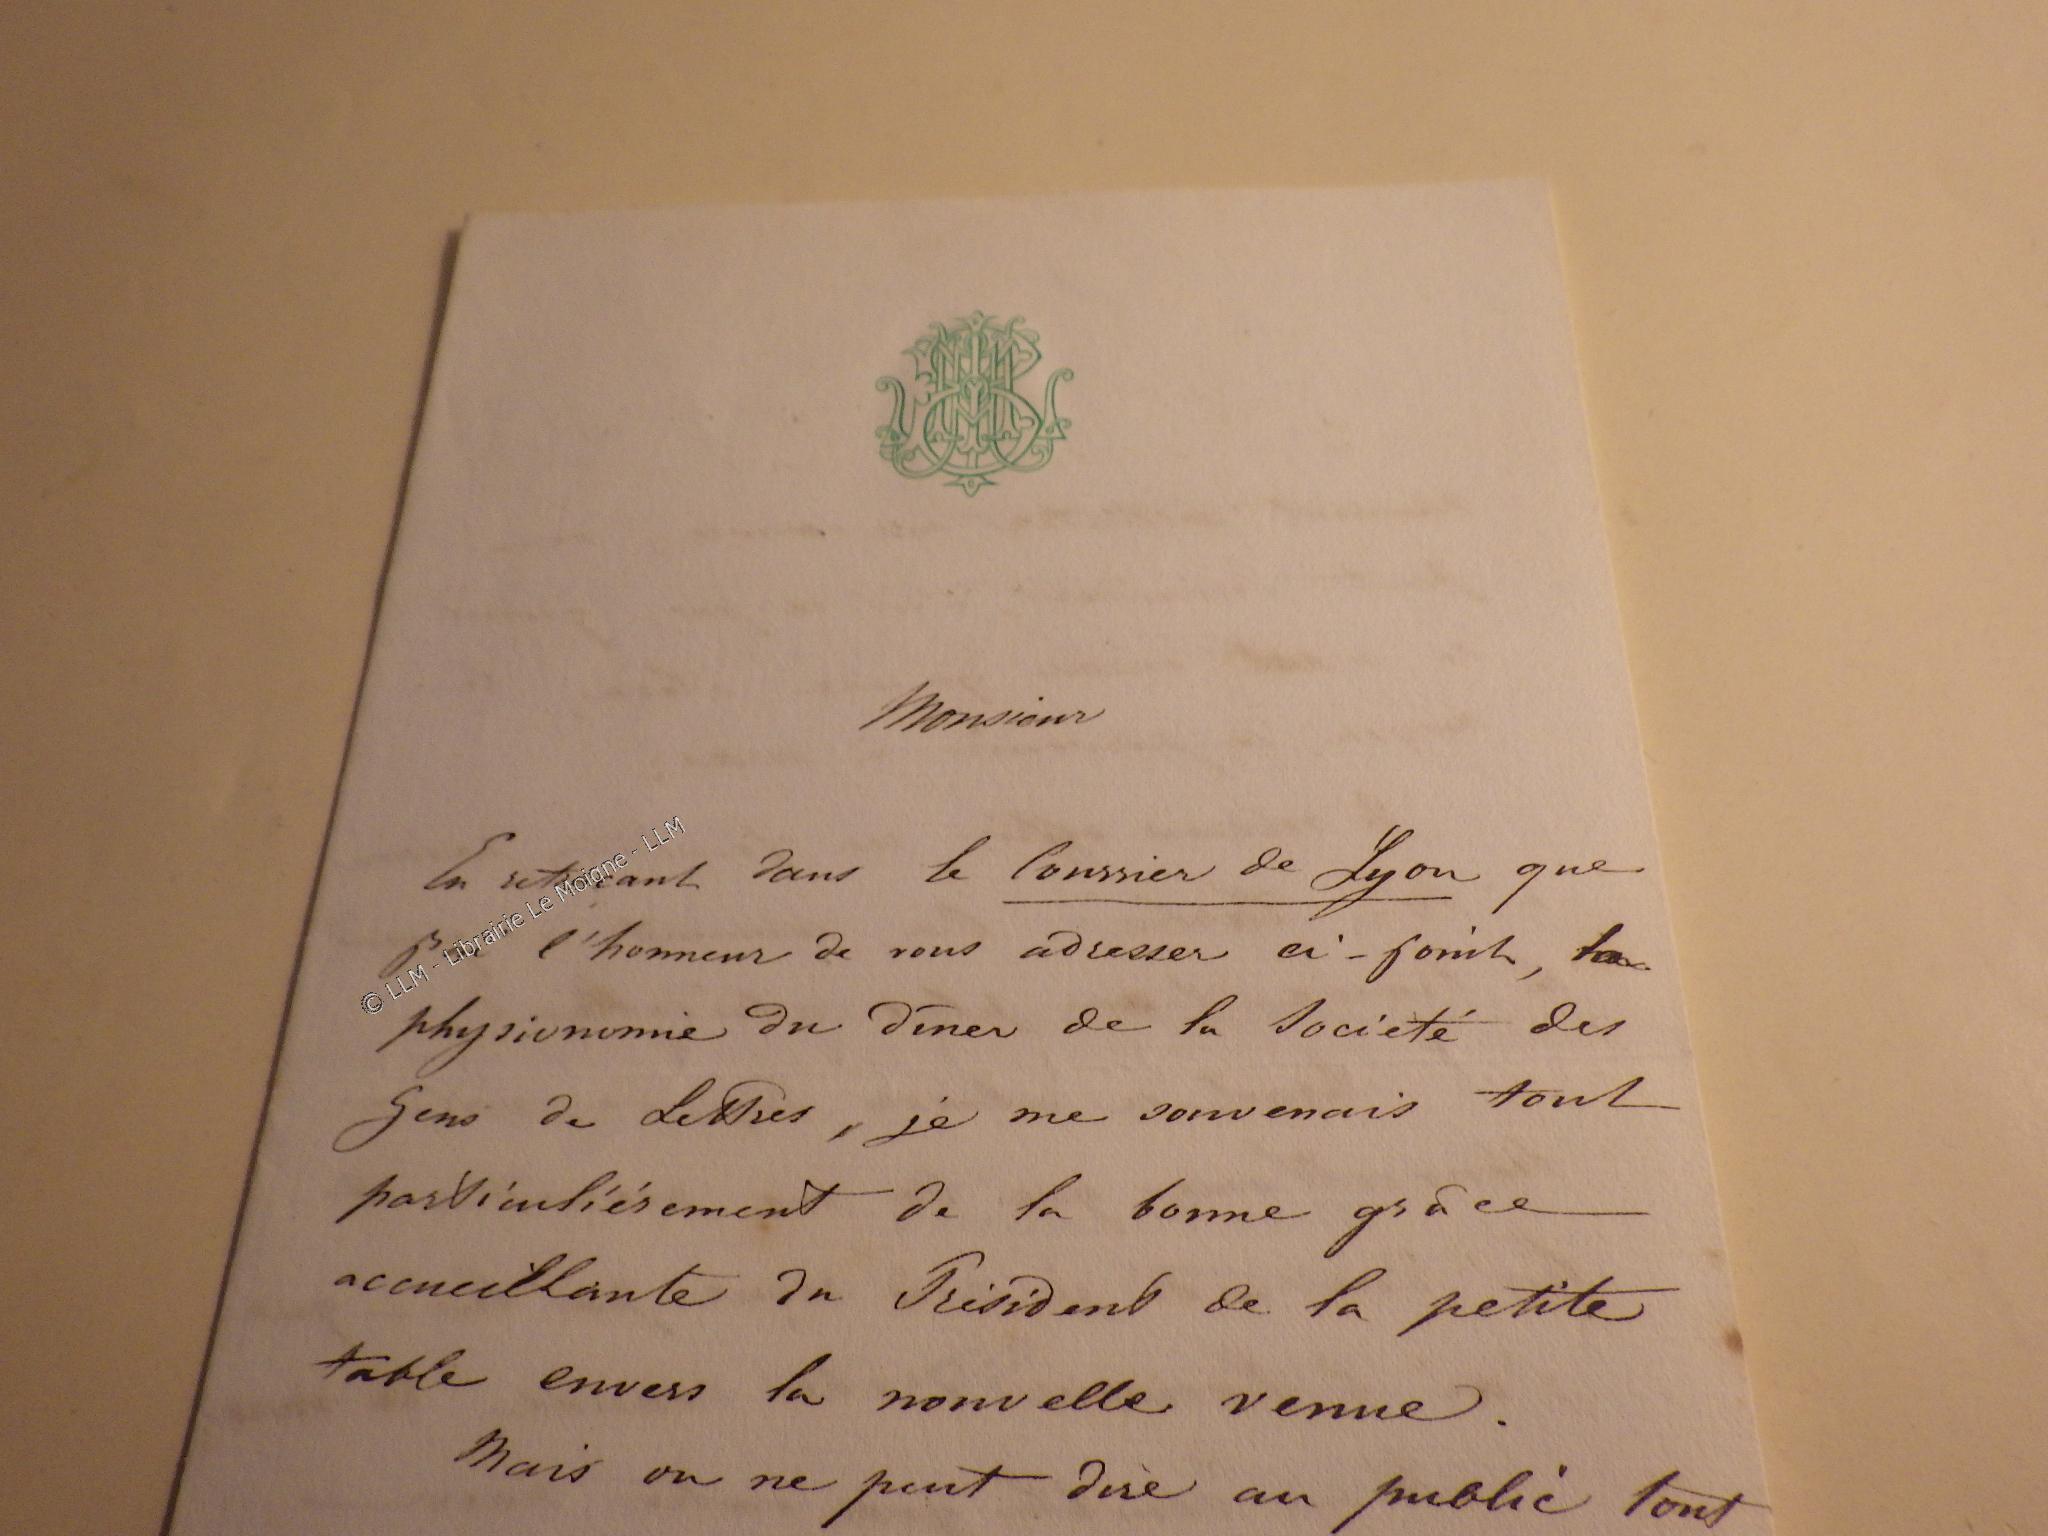 Monsieur
En retraçant dans le Courrier de Lyon que
j'ai l'honneur de vous adresser ci-joint, la
physionomie du dîner de la Société des
Gens de Lettres, je me souvenais tout
particulièrement de la bonne grâce
accueillante du Président de la petite
table envers la nouvelle venue.
Mais on ne peut dire au public tout
© LLM - Librairie Le Moigne - LLM